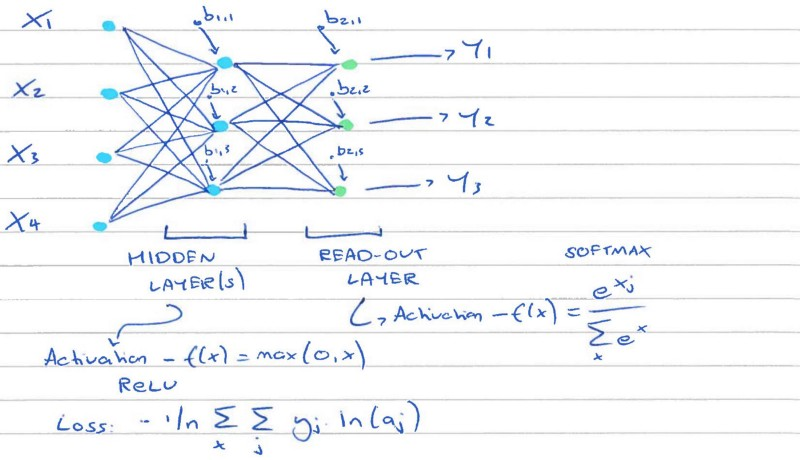 X1 b1,1 b2,1 → Y1
X2 b1,2 b2,2 → Y2
X3 b1,3 b2,3 → Y3
X4
HIDDEN LAYER(S)
READ-OUT LAYER
SOFTMAX
Activation – f(x) = e^xj / Σx e^x
Activation – f(x) = max(0,x)
ReLU
Loss: - 1/n Σx Σj yj ln(aj)